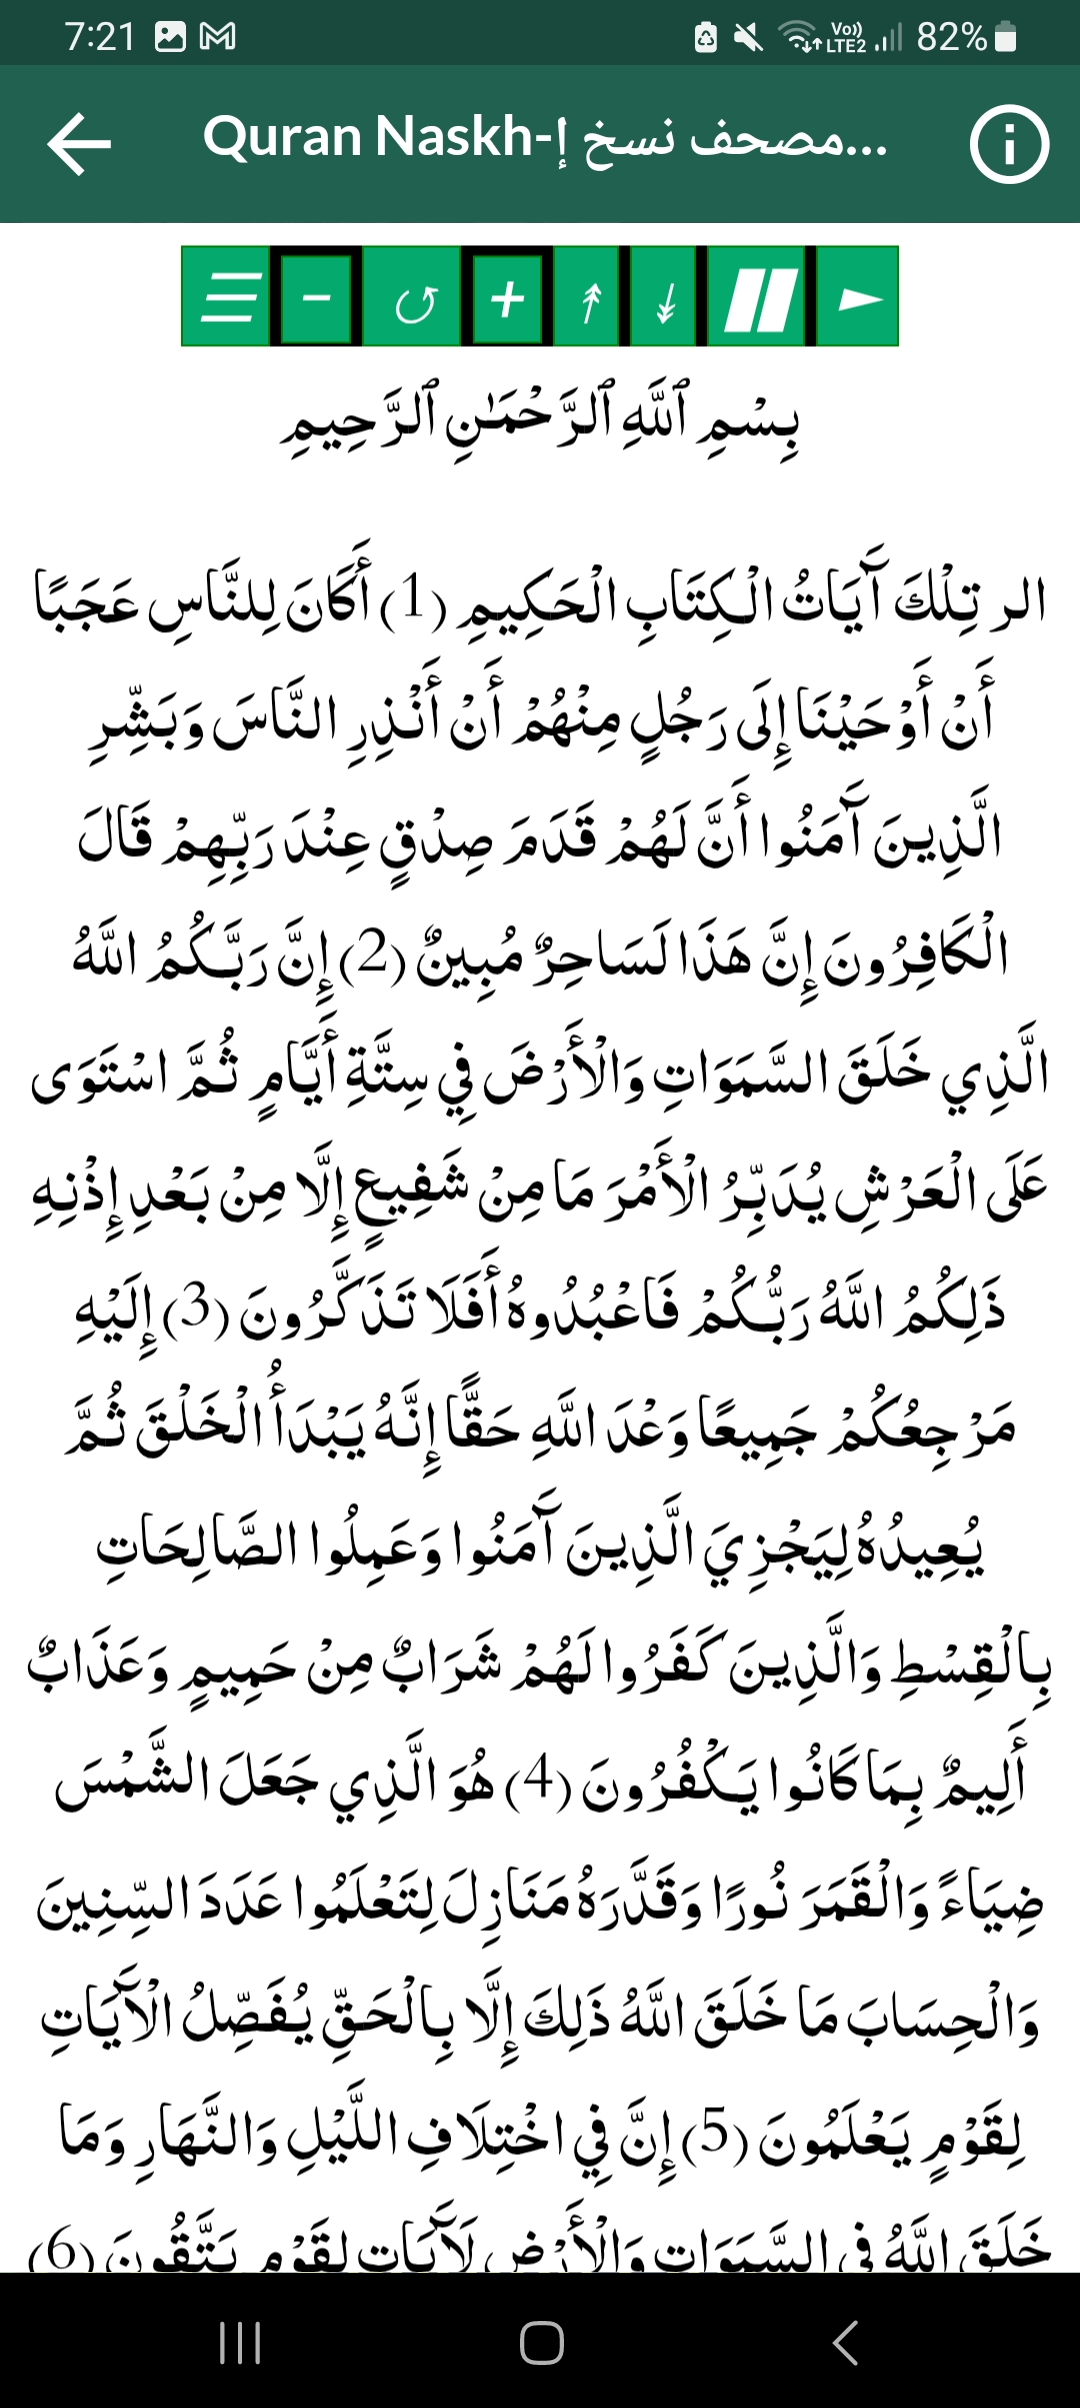 7:21
Vo)) LTE2 82%
Quran Naskh-مصحف نسخ إ...
بِسْمِ ٱللَّهِ ٱلرَّحْمَٰنِ ٱلرَّحِيمِ
الر تِلْكَ آَيَاتُ الْكِتَابِ الْحَكِيمِ (1) أَكَانَ لِلنَّاسِ عَجَبًا
أَنْ أَوْحَيْنَا إِلَى رَجُلٍ مِنْهُمْ أَنْ أَنْذِرِ النَّاسَ وَبَشِّرِ
الَّذِينَ آَمَنُوا أَنَّ لَهُمْ قَدَمَ صِدْقٍ عِنْدَ رَبِّهِمْ قَالَ
الْكَافِرُونَ إِنَّ هَذَا لَسَاحِرٌ مُبِينٌ (2) إِنَّ رَبَّكُمُ اللَّهُ
الَّذِي خَلَقَ السَّمَوَاتِ وَالْأَرْضَ فِي سِتَّةِ أَيَّامٍ ثُمَّ اسْتَوَى
عَلَى الْعَرْشِ يُدَبِّرُ الْأَمْرَ مَا مِنْ شَفِيعٍ إِلَّا مِنْ بَعْدِ إِذْنِهِ
ذَلِكُمُ اللَّهُ رَبُّكُمْ فَاعْبُدُوهُ أَفَلَا تَذَكَّرُونَ (3) إِلَيْهِ
مَرْجِعُكُمْ جَمِيعًا وَعْدَ اللَّهِ حَقًّا إِنَّهُ يَبْدَأُ الْخَلْقَ ثُمَّ
يُعِيدُهُ لِيَجْزِيَ الَّذِينَ آَمَنُوا وَعَمِلُوا الصَّالِحَاتِ
بِالْقِسْطِ وَالَّذِينَ كَفَرُوا لَهُمْ شَرَابٌ مِنْ حَمِيمٍ وَعَذَابٌ
أَلِيمٌ بِمَا كَانُوا يَكْفُرُونَ (4) هُوَ الَّذِي جَعَلَ الشَّمْسَ
ضِيَاءً وَالْقَمَرَ نُورًا وَقَدَّرَهُ مَنَازِلَ لِتَعْلَمُوا عَدَدَ السِّنِينَ
وَالْحِسَابَ مَا خَلَقَ اللَّهُ ذَلِكَ إِلَّا بِالْحَقِّ يُفَصِّلُ الْآَيَاتِ
لِقَوْمٍ يَعْلَمُونَ (5) إِنَّ فِي اخْتِلَافِ اللَّيْلِ وَالنَّهَارِ وَمَا
خَلَقَ اللَّهُ فِي السَّمَوَاتِ وَالْأَرْضِ لَآَيَاتٍ لِقَوْمٍ يَتَّقُونَ (6)